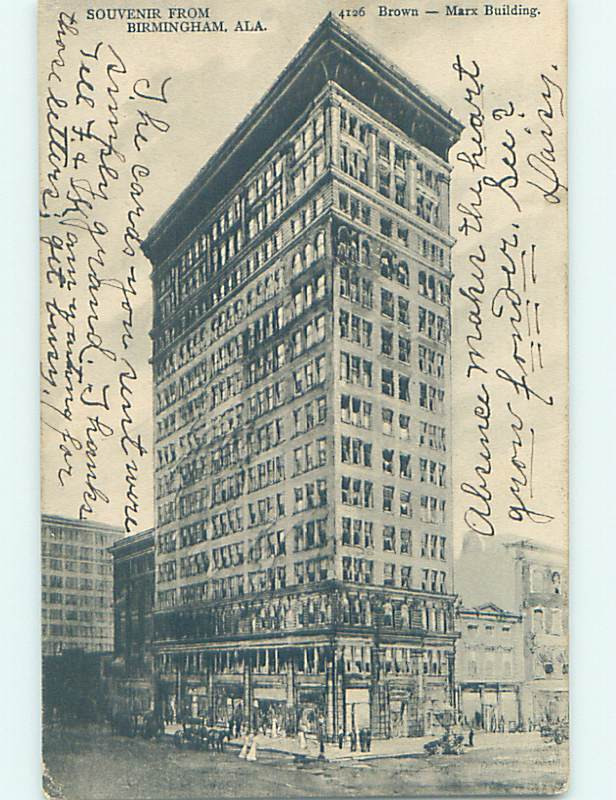 SOUVENIR FROM
BIRMINGHAM, ALA.
4126 Brown — Marx Building.
The cards you sent were
simply grand. Thanks
Tell F. & I am waiting for
those letters; get busy,
Absence makes the heart
grow fonder. See?
Daisy.